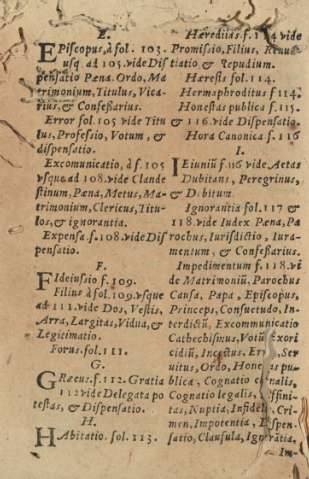 E.
Episcopus, à fol. 103.
usq. ad 105. vide Dis
pensatio Pœna. Ordo, Ma
trimonium, Titulus, Vica-
rius, & Confessarius.
Error fol. 105 vide Titu
lus, Professio, Votum, &
dispensatio.
Excomunicatio, à f. 105
vsque ad 108. vide Clande
stinum, Pœna, Metus, Ma-
trimonium, Clericus, Titu-
los, & ignorantia.
Expensa f. 108. vide Dis
pensatio.
F.
Fideiussio f. 109.
Filius à fol. 109. vsque
ad 111. vide Dos, Vestis,
Arra, Largitas, Vidua, &
Legitimatio.
Forus. fol. 111.
G.
Græcus. f. 112. Gratia
112 vide Delegata po
testas, & Dispensatio.
H.
Habitatio. fol. 113.
Hæreditas f. vide
Promissio, Filius,
tiatio & Repudium.
Hæresis fol. 114.
Hermaphroditus f 114.
Honestas publica f. 115.
& 116. vide Dispensatio.
Hora Canonica f. 116
I.
Ieiuniũ f. 116 vide Aetas
Dubitans, Peregrinus,
& Debitum.
Ignorantia fol. 117 &
118. vide Iudex Pœna, Pa
rochus, Iurisdictio, Iura-
mentum, & Confessarius.
Impedimentum f. 118. vi
de Matrimoniũ, Parochus
Causa, Papa, Episcopus,
Princeps, Consuetudo, In-
terdictũ, Excommunicatio
Cathechismus, Votũ
cidiũ, Incestus, Ser
uitus, Ordo, pu-
blica, Cognatio
Cognatio legalis,
tas, Nuptia, Cri-
men, Impotentia, Dispen-
satio, Clausula, Ignorãtia,
Im-